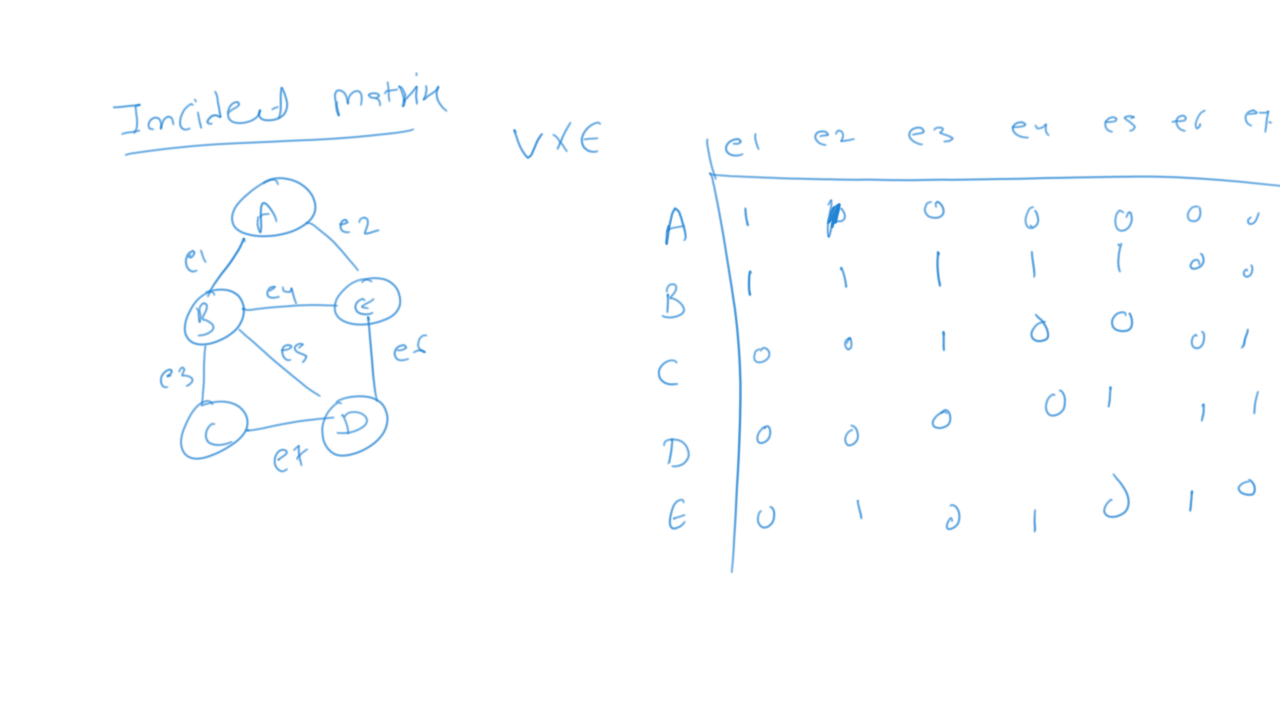 Incident matrix
V X E
A
e1
e2
B
e4
E
e3
e5
e6
C
D
e7
e1 e2 e3 e4 e5 e6 e7
A 1 0 0 0 0 0
B 1 1 1 1 1 0 0
C 0 0 1 0 0 0 1
D 0 0 0 0 1 1 1
E 0 1 0 1 0 1 0